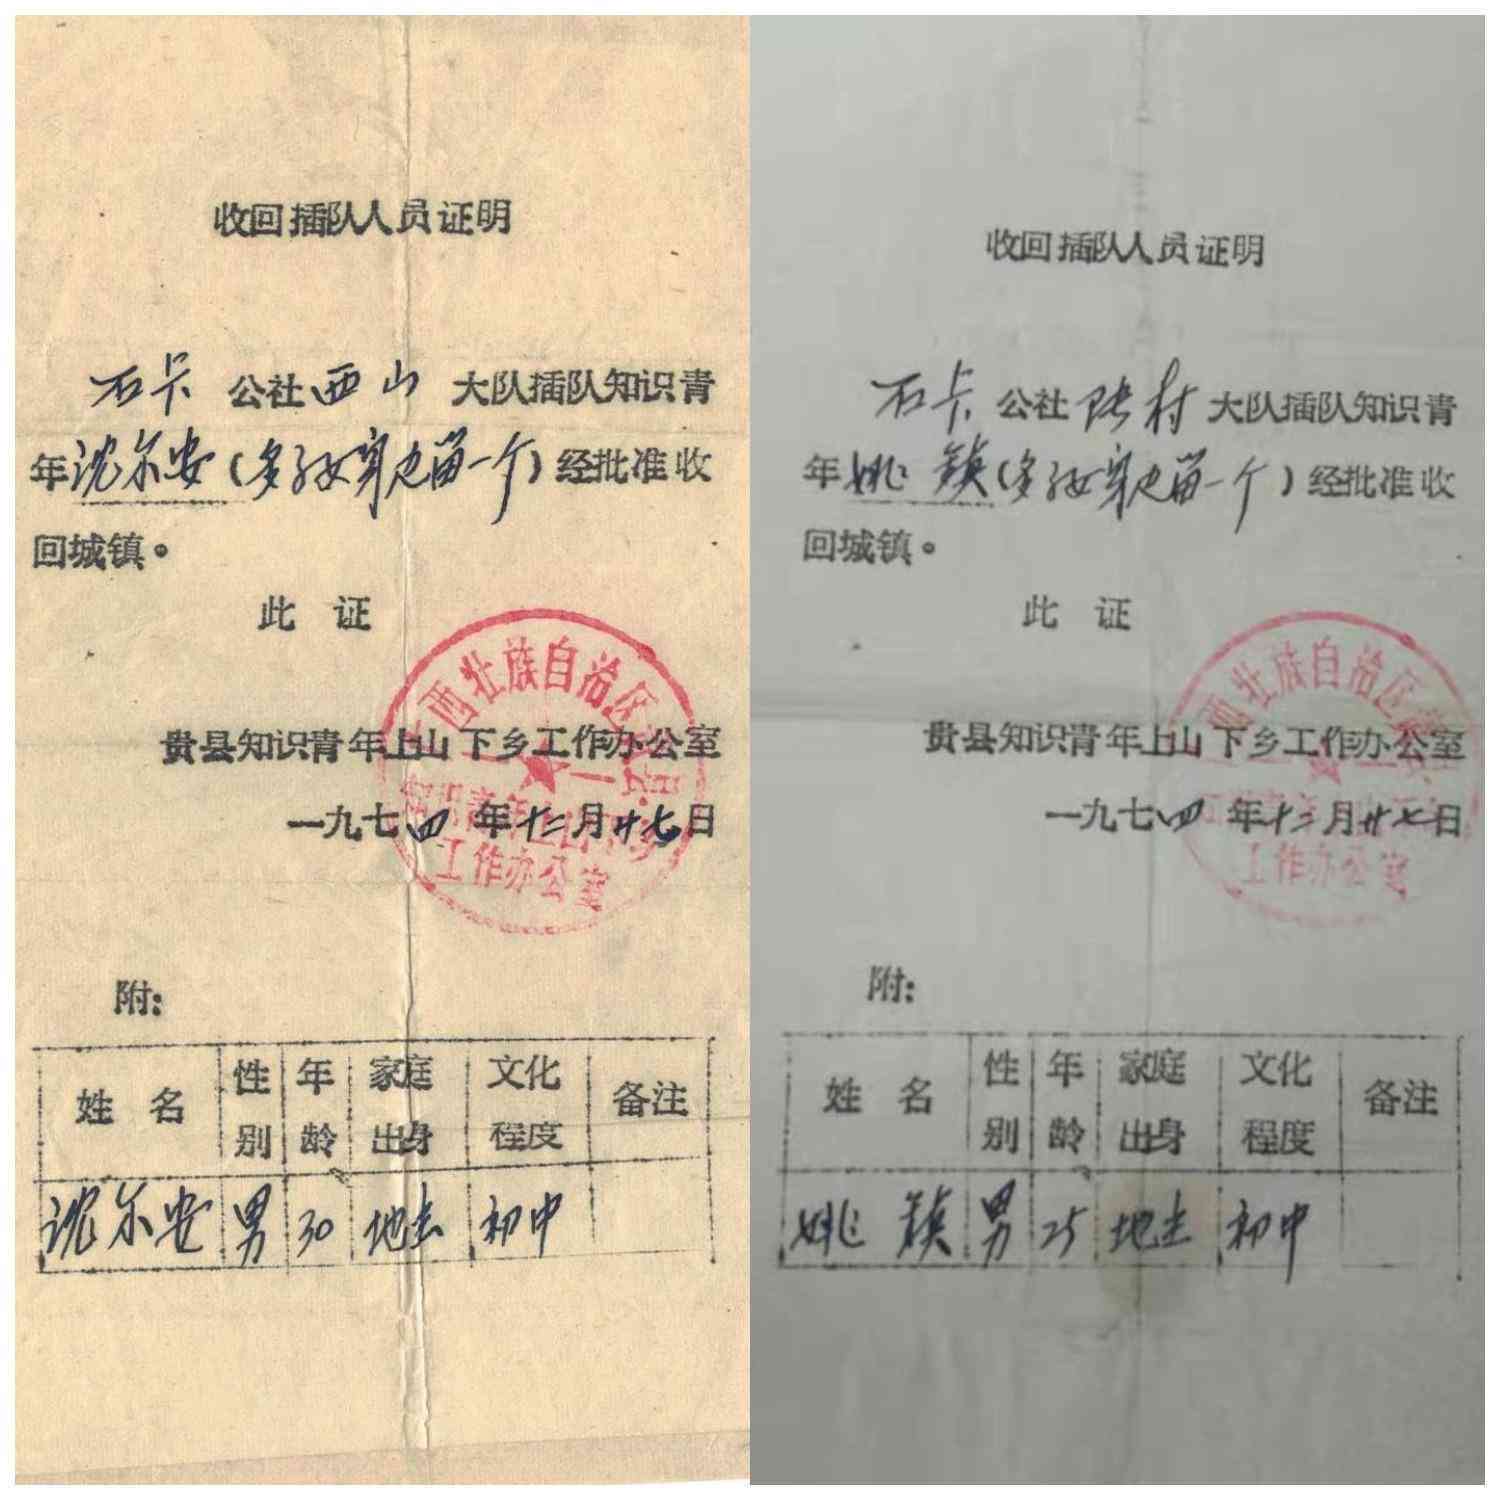 收回插队人员证明
石卡 公社 西山 大队插队知识青
年 沈尔安(多子女身边留一个)经批准收
回城镇。
此 证
贵县知识青年上山下乡工作办公室
一九七四年十二月廿七日
广西壮族自治区贵县
知识青年上山下乡
工作办公室
附:
姓 名 性别 年龄 家庭出身 文化程度 备注
沈尔安 男 30 地主 初中
收回插队人员证明
石卡 公社 陆村 大队插队知识青
年 姚 (多子女身边留一个)经批准收
回城镇。
此 证
贵县知识青年上山下乡工作办公室
一九七四年十二月廿七日
西壮族自治区
工作办公室
附:
姓 名 性别 年龄 家庭出身 文化程度 备注
姚 男 25 地主 初中